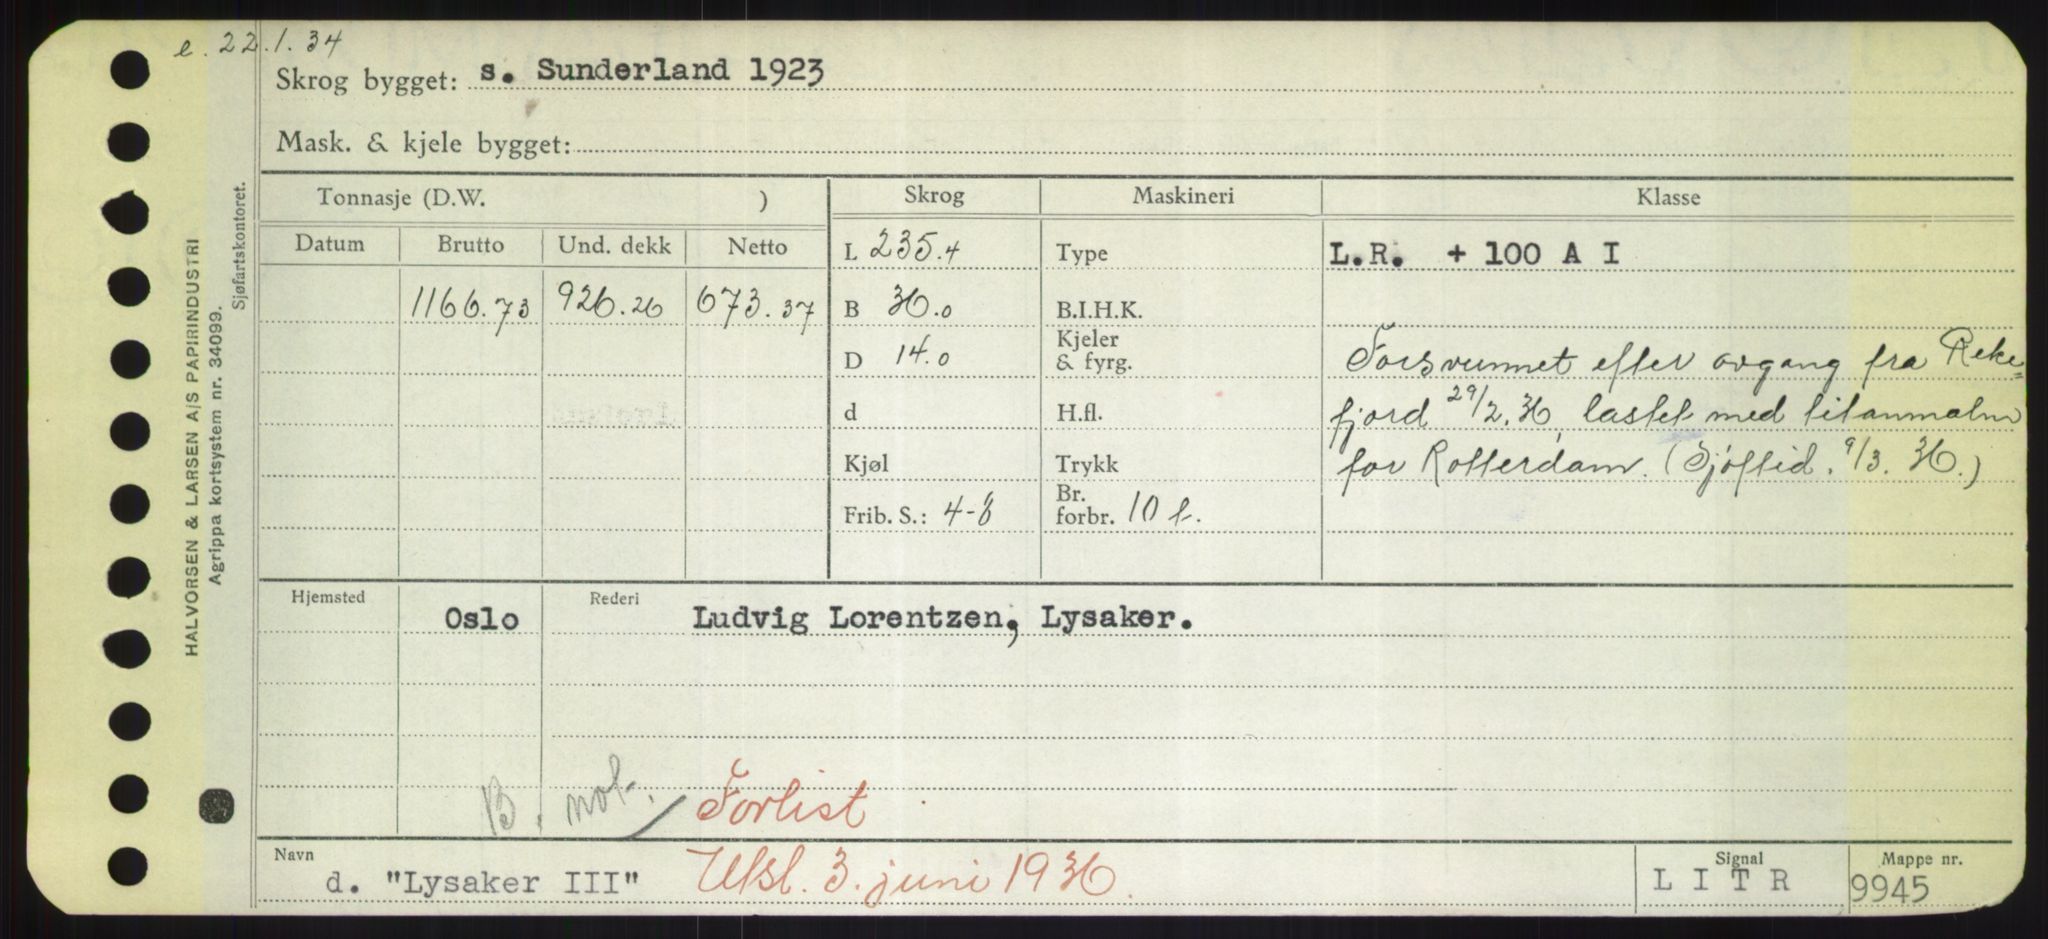 e. 22.1.34
Skrog bygget: s. Sunderland 1923
Mask. & kjele bygget:
Tonnasje (D.W. ) Skrog Maskineri Klasse
Datum Brutto Und. dekk Netto L 235.4 Type L.R. + 100 A I
1166.73 926.26 673.37 B 36.0 B.I.H.K.
D 14.0 Kjeler & fyrg. Forsvunnet efter avgang fra Reke=
d H.fl. fjord 29/2.36, lastet med titanmalm
Kjøl Trykk for Rotterdam. (Sjøftid. 9/3. 36.)
Frib. S.: 4-8 Br. forbr. 10 t.
Hjemsted Oslo Rederi Ludvig Lorentzen, Lysaker.
B. not. Forlist
Navn d. "Lysaker III" Utsl. 3. juni 1936. Signal L I T R Mappe nr. 9945
HALVORSEN & LARSEN A/S PAPIRINDUSTRI
Agrippa kortsystem nr. 34099.
Sjøfartskontoret.